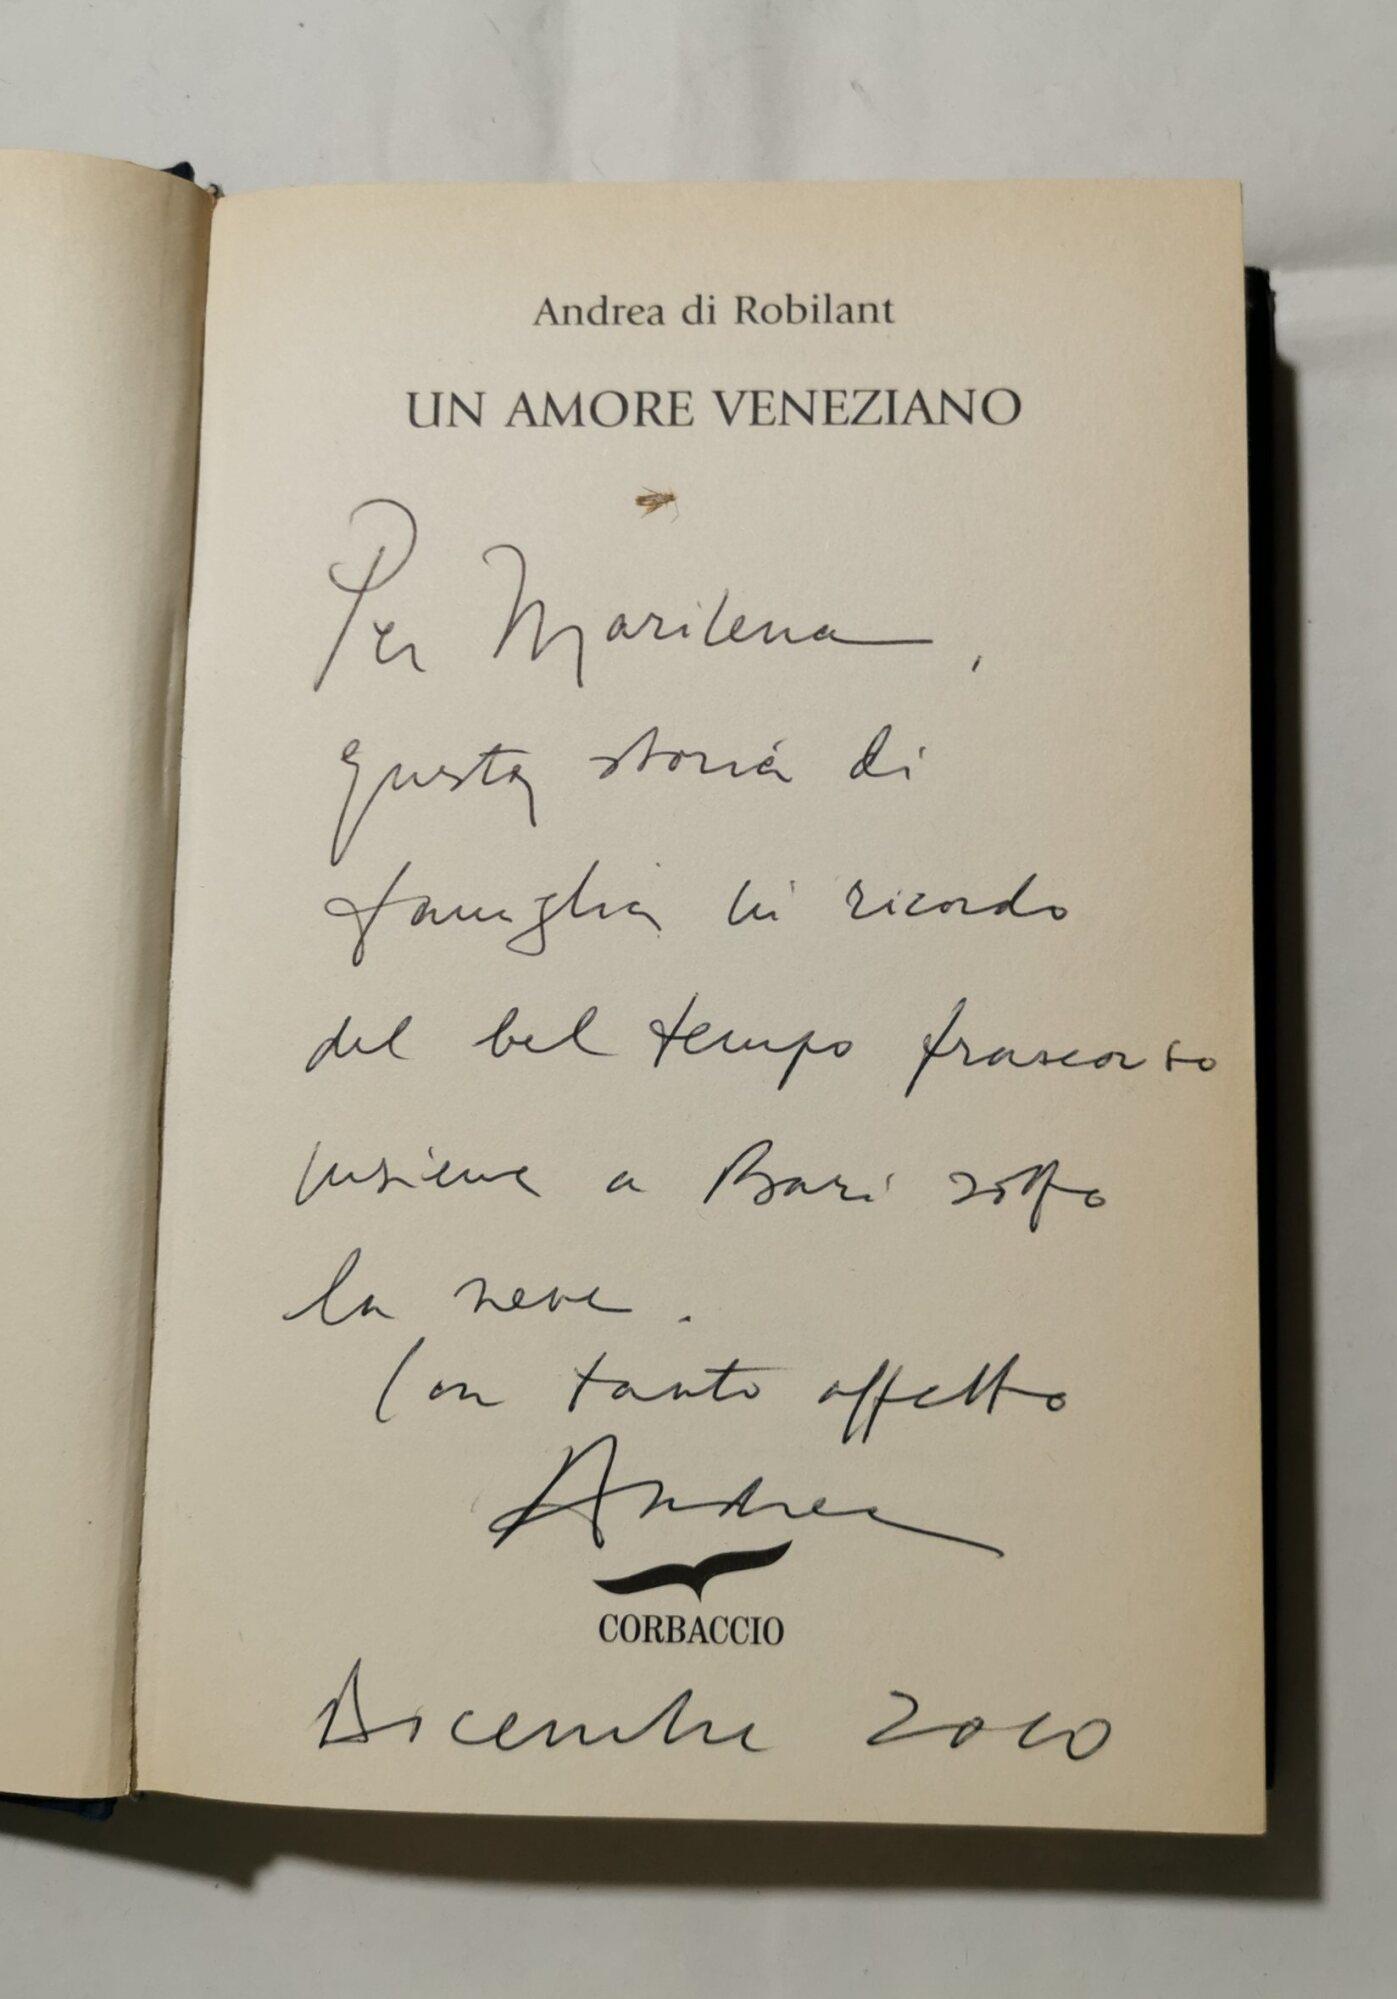 Andrea di Robilant
UN AMORE VENEZIANO
Per Marilena,
questa storia di
famiglia in ricordo
del bel tempo trascorso
insieme a Bari sotto
la neve.
Con tanto affetto
Andrea
CORBACCIO
Dicembre 2010